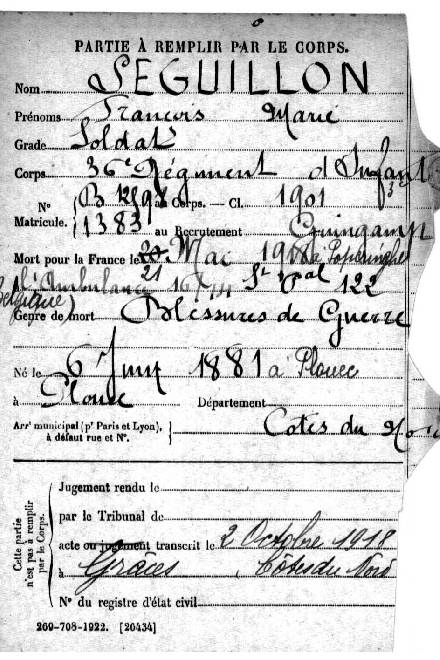 PARTIE À REMPLIR PAR LE CORPS.
Nom LE GUILLON
Prénoms Francois Marie
Grade Soldat
Corps 36e Régiment d'Infant
N° au Corps. — Cl. 1901
Matricule. 1383 au Recrutement Guingamp
Mort pour la France le 21 Mai 1918 à Poperinghe
l'Ambulance 16/ Sect Pal 122
Belgique)
Genre de mort Blessures de Guerre
Né le 6 Juin 1881 à Plouec
à Plouec Département
Arrt municipal (pr Paris et Lyon), à défaut rue et N°. Cotes du Nord
Cette partie n'est pas à remplir par le Corps.
Jugement rendu le
par le Tribunal de
acte ou jugement transcrit le 2 Octobre 1918
à Grâces, Côtes du Nord
N° du registre d'état civil
269-708-1922. [26434]